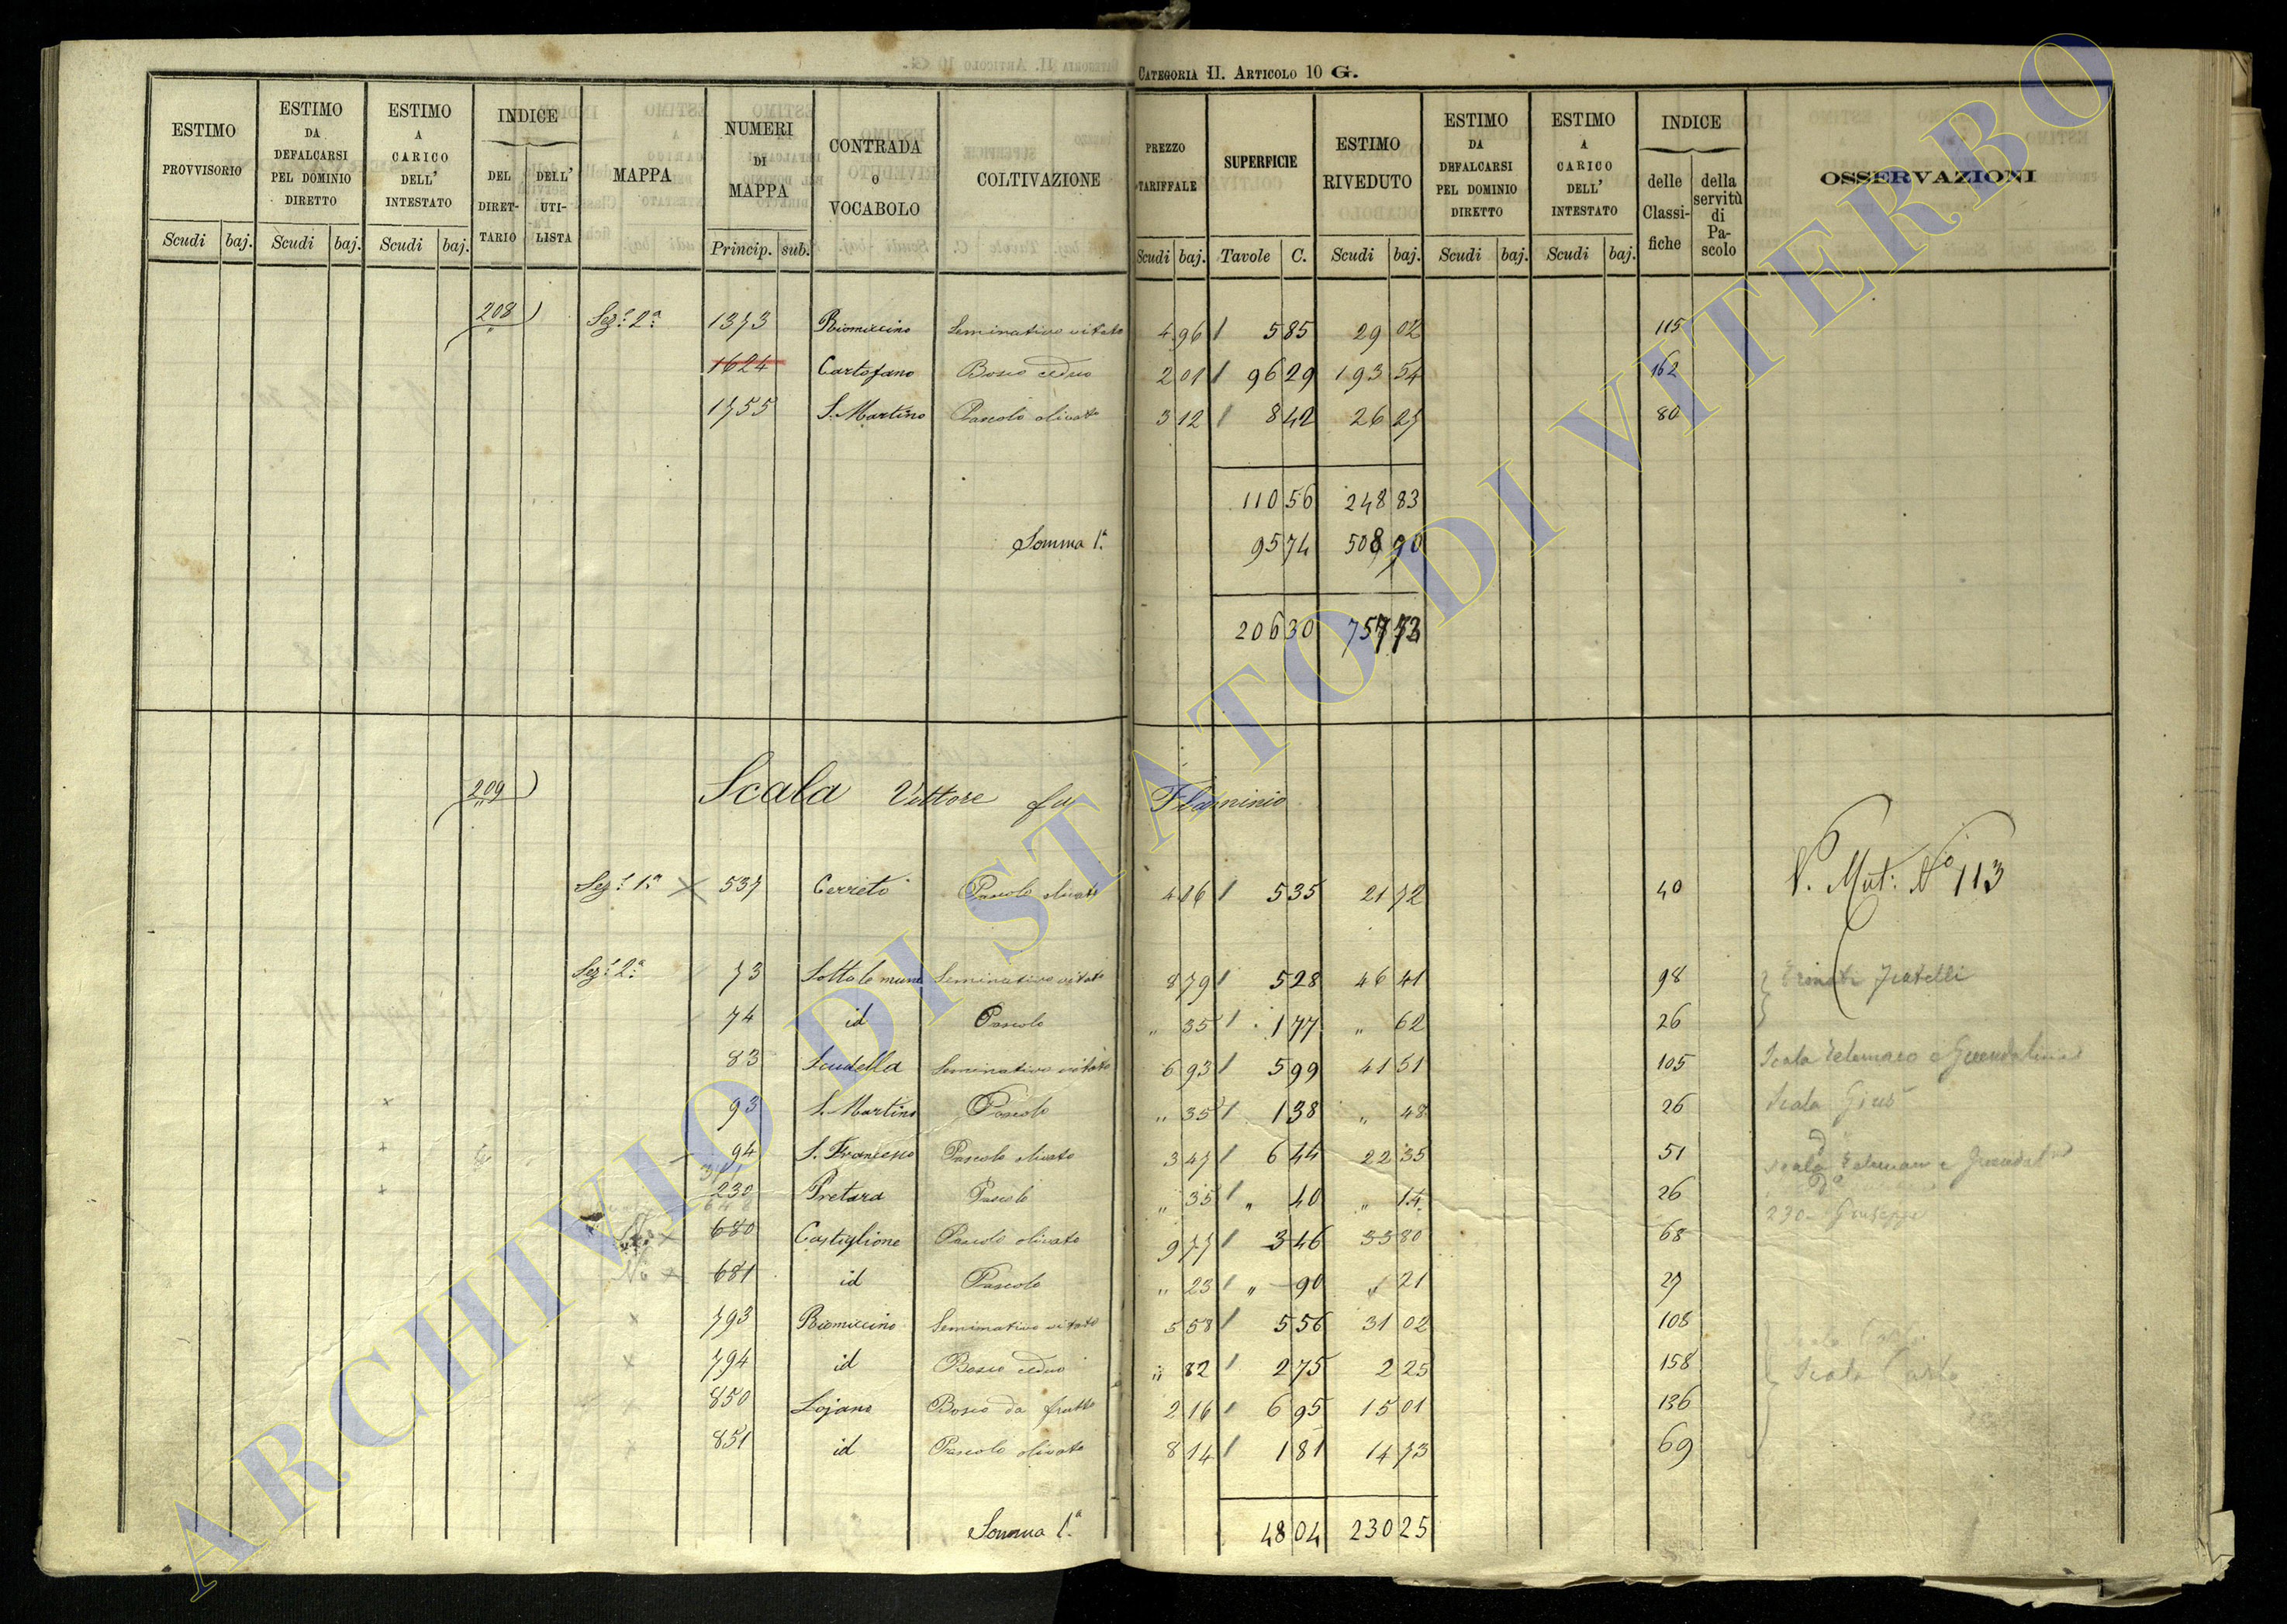 CATEGORIA II. ARTICOLO 10 G.
ESTIMO PROVVISORIO | ESTIMO DA DEFALCARSI PEL DOMINIO DIRETTO | ESTIMO A CARICO DELL' INTESTATO | INDICE DEL DIRETTARIO | DELL' UTILISTA | MAPPA | NUMERI DI MAPPA | CONTRADA O VOCABOLO | COLTIVAZIONE | PREZZO TARIFFALE | SUPERFICIE | ESTIMO RIVEDUTO | ESTIMO DA DEFALCARSI PEL DOMINIO DIRETTO | ESTIMO A CARICO DELL' INTESTATO | INDICE delle Classifiche | della servitù di Pascolo | OSSERVAZIONI
Scudi baj. Scudi baj. Scudi baj. Princip. sub. Scudi baj. Tavole C. Scudi baj. Scudi baj. Scudi baj.
208) Sez.e 2a 1373 Riomiccino Seminativo vitato 4 96 5 85 29 02 115
1624 Cartofano Bosco ceduo 2 01 96 29 193 54 162
1755 S. Martino Pascolo olivato 3 12 8 42 26 27 80
110 56 248 83
Somma 1.a 95 74 508 90
206 30 757 73
209) Scala Vettore fu Flaminio
Sez.e 1.a 537 Cerreto Pascolo olivato 4 06 5 35 21 72 40 V. Mut: No 113
Sez.e 2.a 73 Sotto le mura Seminativo vitato 8 79 5 28 46 41 98 fratelli
74 id Pascolo " 35 1 77 " 62 26
83 Scudella Seminativo vitato 6 93 5 99 41 51 105 Scala Telemaco e Guendalina
93 S. Martino Pascolo " 35 1 38 " 48 26 Scala Gius
94 S. Francesco Pascolo olivato 3 47 6 44 22 35 51 Scala
230 Pretara Pascolo " 35 " 40 " 14 26
648 230 Giuseppe
680 Castiglione Pascolo olivato 9 77 3 46 33 80 68
681 id Pascolo " 23 " 90 " 21 27
793 Riomiccino Seminativo vitato 5 58 5 56 31 02 108
794 id Bosco ceduo " 82 2 75 2 25 158 Scala Carlo
850 Lojano Bosco da frutto 2 16 6 95 15 01 136
851 id Pascolo olivato 8 14 1 81 14 73 69
Somma 1.a 48 04 230 25
ARCHIVIO DI STATO DI VITERBO